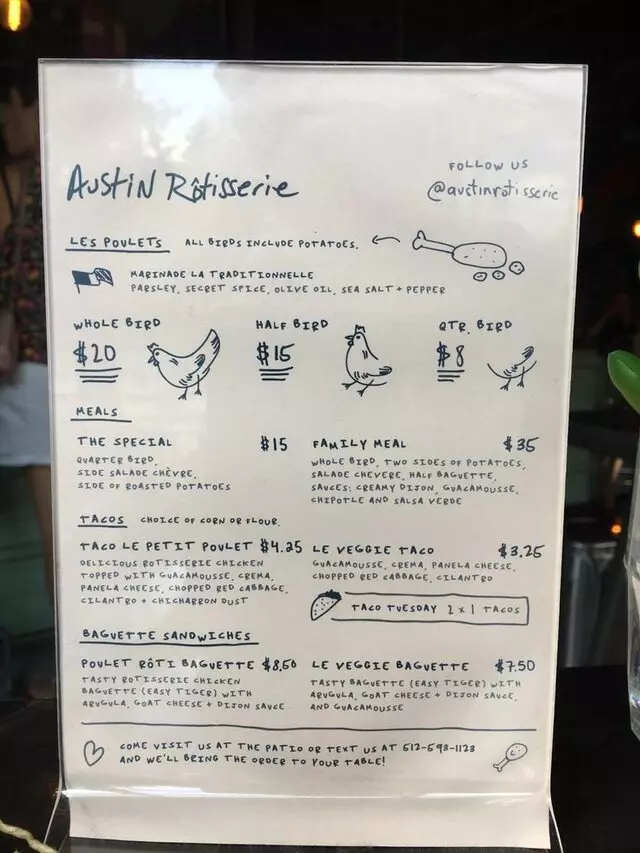 AUSTIN RôTISSERIE
FOLLOW US
@austinrotisserie
LES POULETS ALL BIRDS INCLUDE POTATOES.
MARINADE LA TRADITIONNELLE
PARSLEY, SECRET SPICE, OLIVE OIL, SEA SALT + PEPPER
WHOLE BIRD
$20
HALF BIRD
$15
QTR. BIRD
$8
MEALS
THE SPECIAL $15
QUARTER BIRD,
SIDE SALADE CHÈVRE,
SIDE OF ROASTED POTATOES
FAMILY MEAL $35
WHOLE BIRD, TWO SIDES OF POTATOES,
SALADE CHEVERE, HALF BAGUETTE,
SAUCES: CREAMY DIJON, GUACAMOUSSE,
CHIPOTLE AND SALSA VERDE
TACOS CHOICE OF CORN OR FLOUR.
TACO LE PETIT POULET $4.25
DELICIOUS ROTISSERIE CHICKEN
TOPPED WITH GUACAMOUSSE, CREMA,
PANELA CHEESE, CHOPPED RED CABBAGE,
CILANTRO + CHICHARRON DUST
LE VEGGIE TACO $3.25
GUACAMOUSSE, CREMA, PANELA CHEESE,
CHOPPED RED CABBAGE, CILANTRO
TACO TUESDAY 2 x 1 TACOS
BAGUETTE SANDWICHES
POULET RôTI BAGUETTE $8.50
TASTY ROTISSERIE CHICKEN
BAGUETTE (EASY TIGER) WITH
ARUGULA, GOAT CHEESE + DIJON SAUCE
LE VEGGIE BAGUETTE $7.50
TASTY BAGUETTE (EASY TIGER) WITH
ARUGULA, GOAT CHEESE + DIJON SAUCE,
AND GUACAMOUSSE
COME VISIT US AT THE PATIO OR TEXT US AT 512-593-1123
AND WE'LL BRING THE ORDER TO YOUR TABLE!